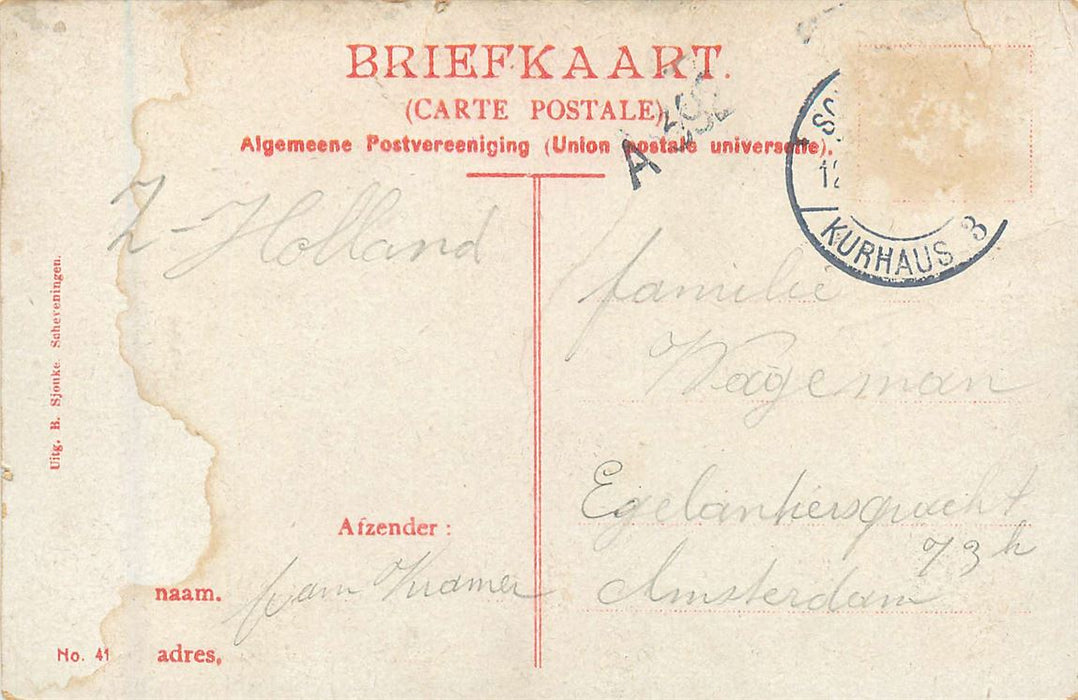 BRIEFKAART.
(CARTE POSTALE)
Algemeene Postvereeniging (Union postale universelle).
A
12
KURHAUS 3
Z-Holland
familie
Wageman
Egelantiersgracht
73 h
Amsterdam
Uitg. B. Sjouke. Scheveningen.
Afzender :
naam. fam Kramer
No. 41
adres,